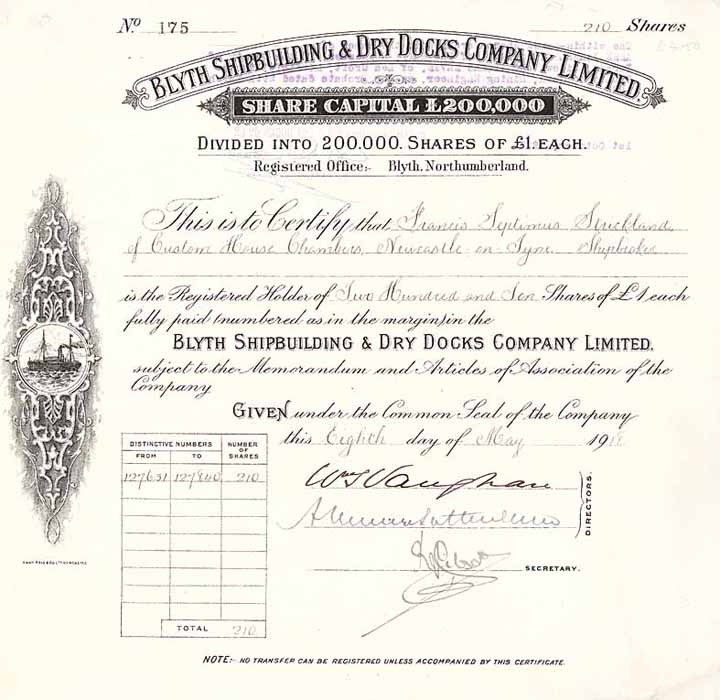 No 175 210 Shares
BLYTH SHIPBUILDING & DRY DOCKS COMPANY LIMITED.
SHARE CAPITAL £200,000
DIVIDED INTO 200.000. SHARES OF £1. EACH.
Registered Office:- Blyth, Northumberland.
This is to Certify that Francis Septimus Strickland
of Custom House Chambers, Newcastle-on-Tyne. Shipbroker
is the Registered Holder of Two Hundred and Ten Shares of £1 each
fully paid (numbered as in the margin) in the
BLYTH SHIPBUILDING & DRY DOCKS COMPANY LIMITED.
subject to the Memorandum and Articles of Association of the
Company
GIVEN under the Common Seal of the Company
this Eighth day of May 1918
DISTINCTIVE NUMBERS NUMBER OF SHARES
FROM TO
127631 127840 210
TOTAL 210
Wm Vaughan
DIRECTORS.
SECRETARY.
NOTE:- NO TRANSFER CAN BE REGISTERED UNLESS ACCOMPANIED BY THIS CERTIFICATE.